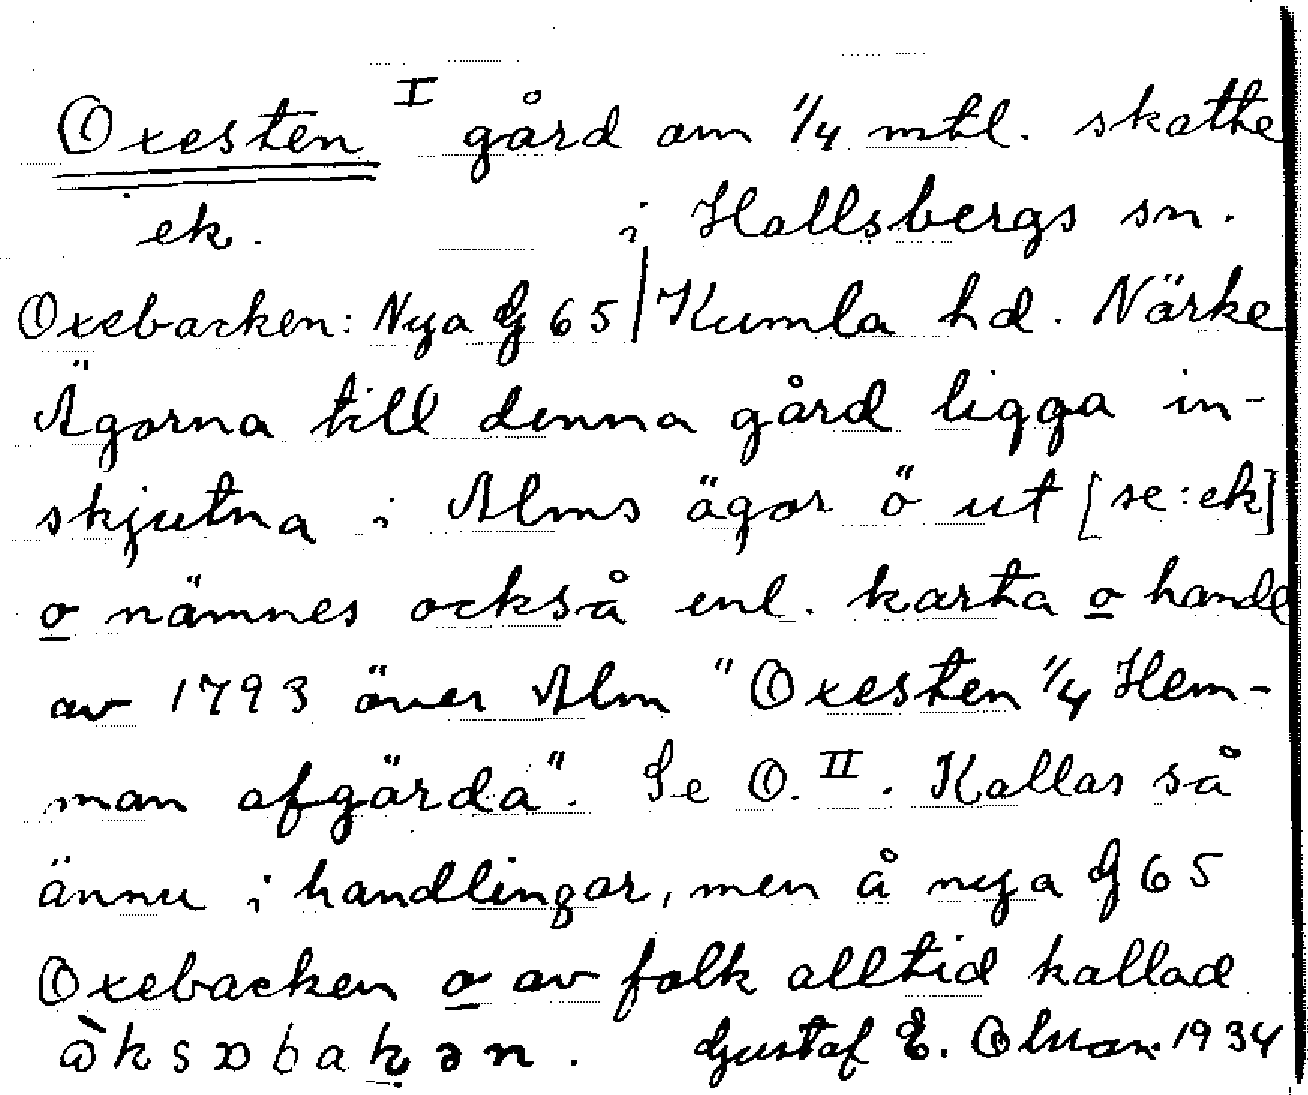 Oxesten I gård om 1/4 mtl. skatte
ek. i Hallsbergs sn.
Oxebacken: Nya G 65 | Kumla hd. Närke
Ägorna till denna gård ligga in-
skjutna i Alms ägor ö ut [se: ek]
o nämnes också enl. karta o handl
av 1793 över Alm "Oxesten 1/4 Hem-
man afgärda". Se O. II. Kallas så
ännu i handlingar, men å nya G 65
Oxebacken o av folk alltid kallad
Gustaf E. 1934